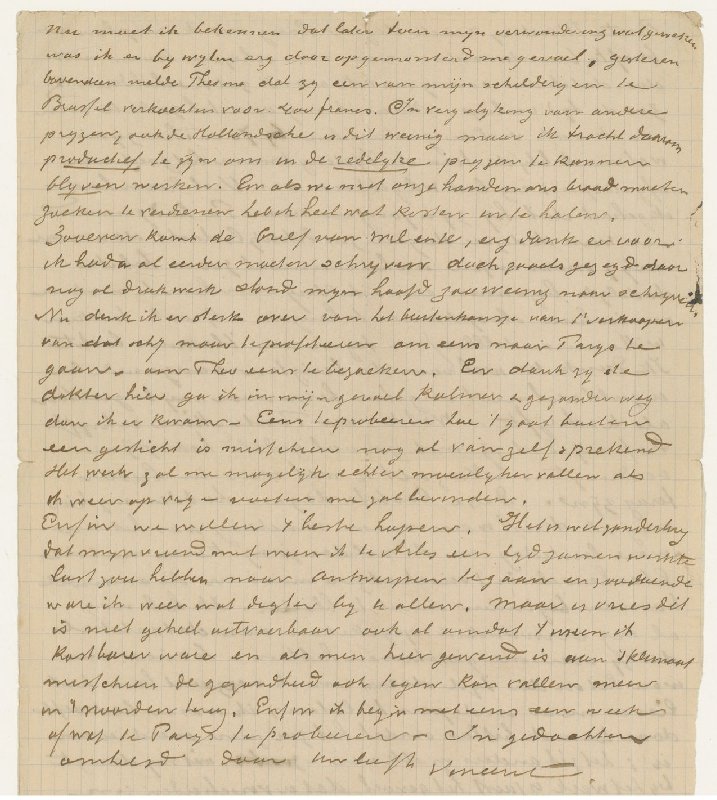 Nu moet ik bekennen dat later toen mijn verwondering wat geweken
was ik er bij wijlen erg door opgemonterd me gevoel, gisteren
bovendien melde Theo me dat zij een van mijn schilderijen te
Brussel verkochten voor 400 francs. In vergelijking van andere
prijzen, ook de Hollandsche is dit weinig maar ik tracht daarom
productief te zijn om in de redelijke prijzen te kunnen
blijven werken. En als we met onze handen ons brood moeten
zoeken te verdienen heb ik heel wat kosten in te halen.
Zooeven komt de brief van Wil ook, erg dank er voor.
ik had u al eerder moeten schrijven doch zooals gezegd door
nog al druk werk stond mijn hoofd zoo weinig naar schrijven.
Nu denk ik er sterk over van het buitenkansje van 't verkoopen
van dat schij maar te profiteeren om eens naar Parijs te
gaan om Theo eens te bezoeken. En dank zij de
dokter hier ga ik in mijn gevoel kalmer & gezonder weg
dan ik er kwam – Eens te probeeren hoe 't gaat buiten
een gesticht is misschien nog al van zelf sprekend
Het werk zal me mogelijk echter moeielijker vallen als
ik weer op vrije voeten me zal bevinden.
Enfin we willen 't beste hopen. Het is wel zonderling
dat mijn vriend met wien ik te Arles een tijd zamen werkte
lust zou hebben naar Antwerpen te gaan en zoodoende
ware ik weer wat digter bij U allen. Maar ik vrees dit
is niet geheel uitvoerbaar ook al omdat 't meen ik
kostbaarer ware en als men hier gewend is aan 't klimaat
misschien de gezondheid ook tegen kan vallen meer
in 't noorden terug. Enfin ik begin met eens een week
of wat te Parijs te probeeren – In gedachten
omhelsd door Uw liefh
Vincent